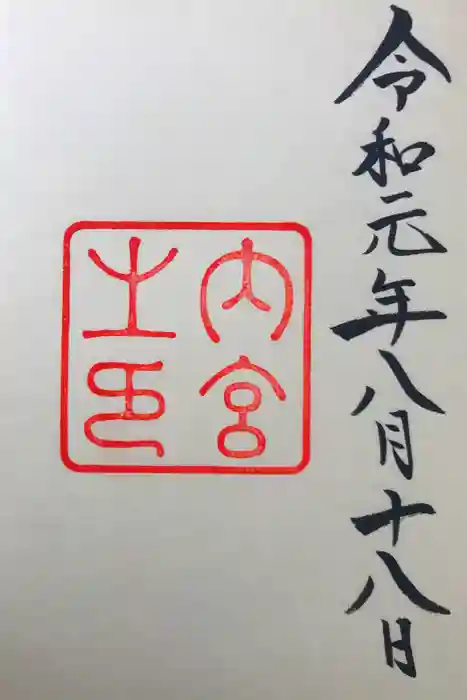 令和元年八月十八日
内宮
之印